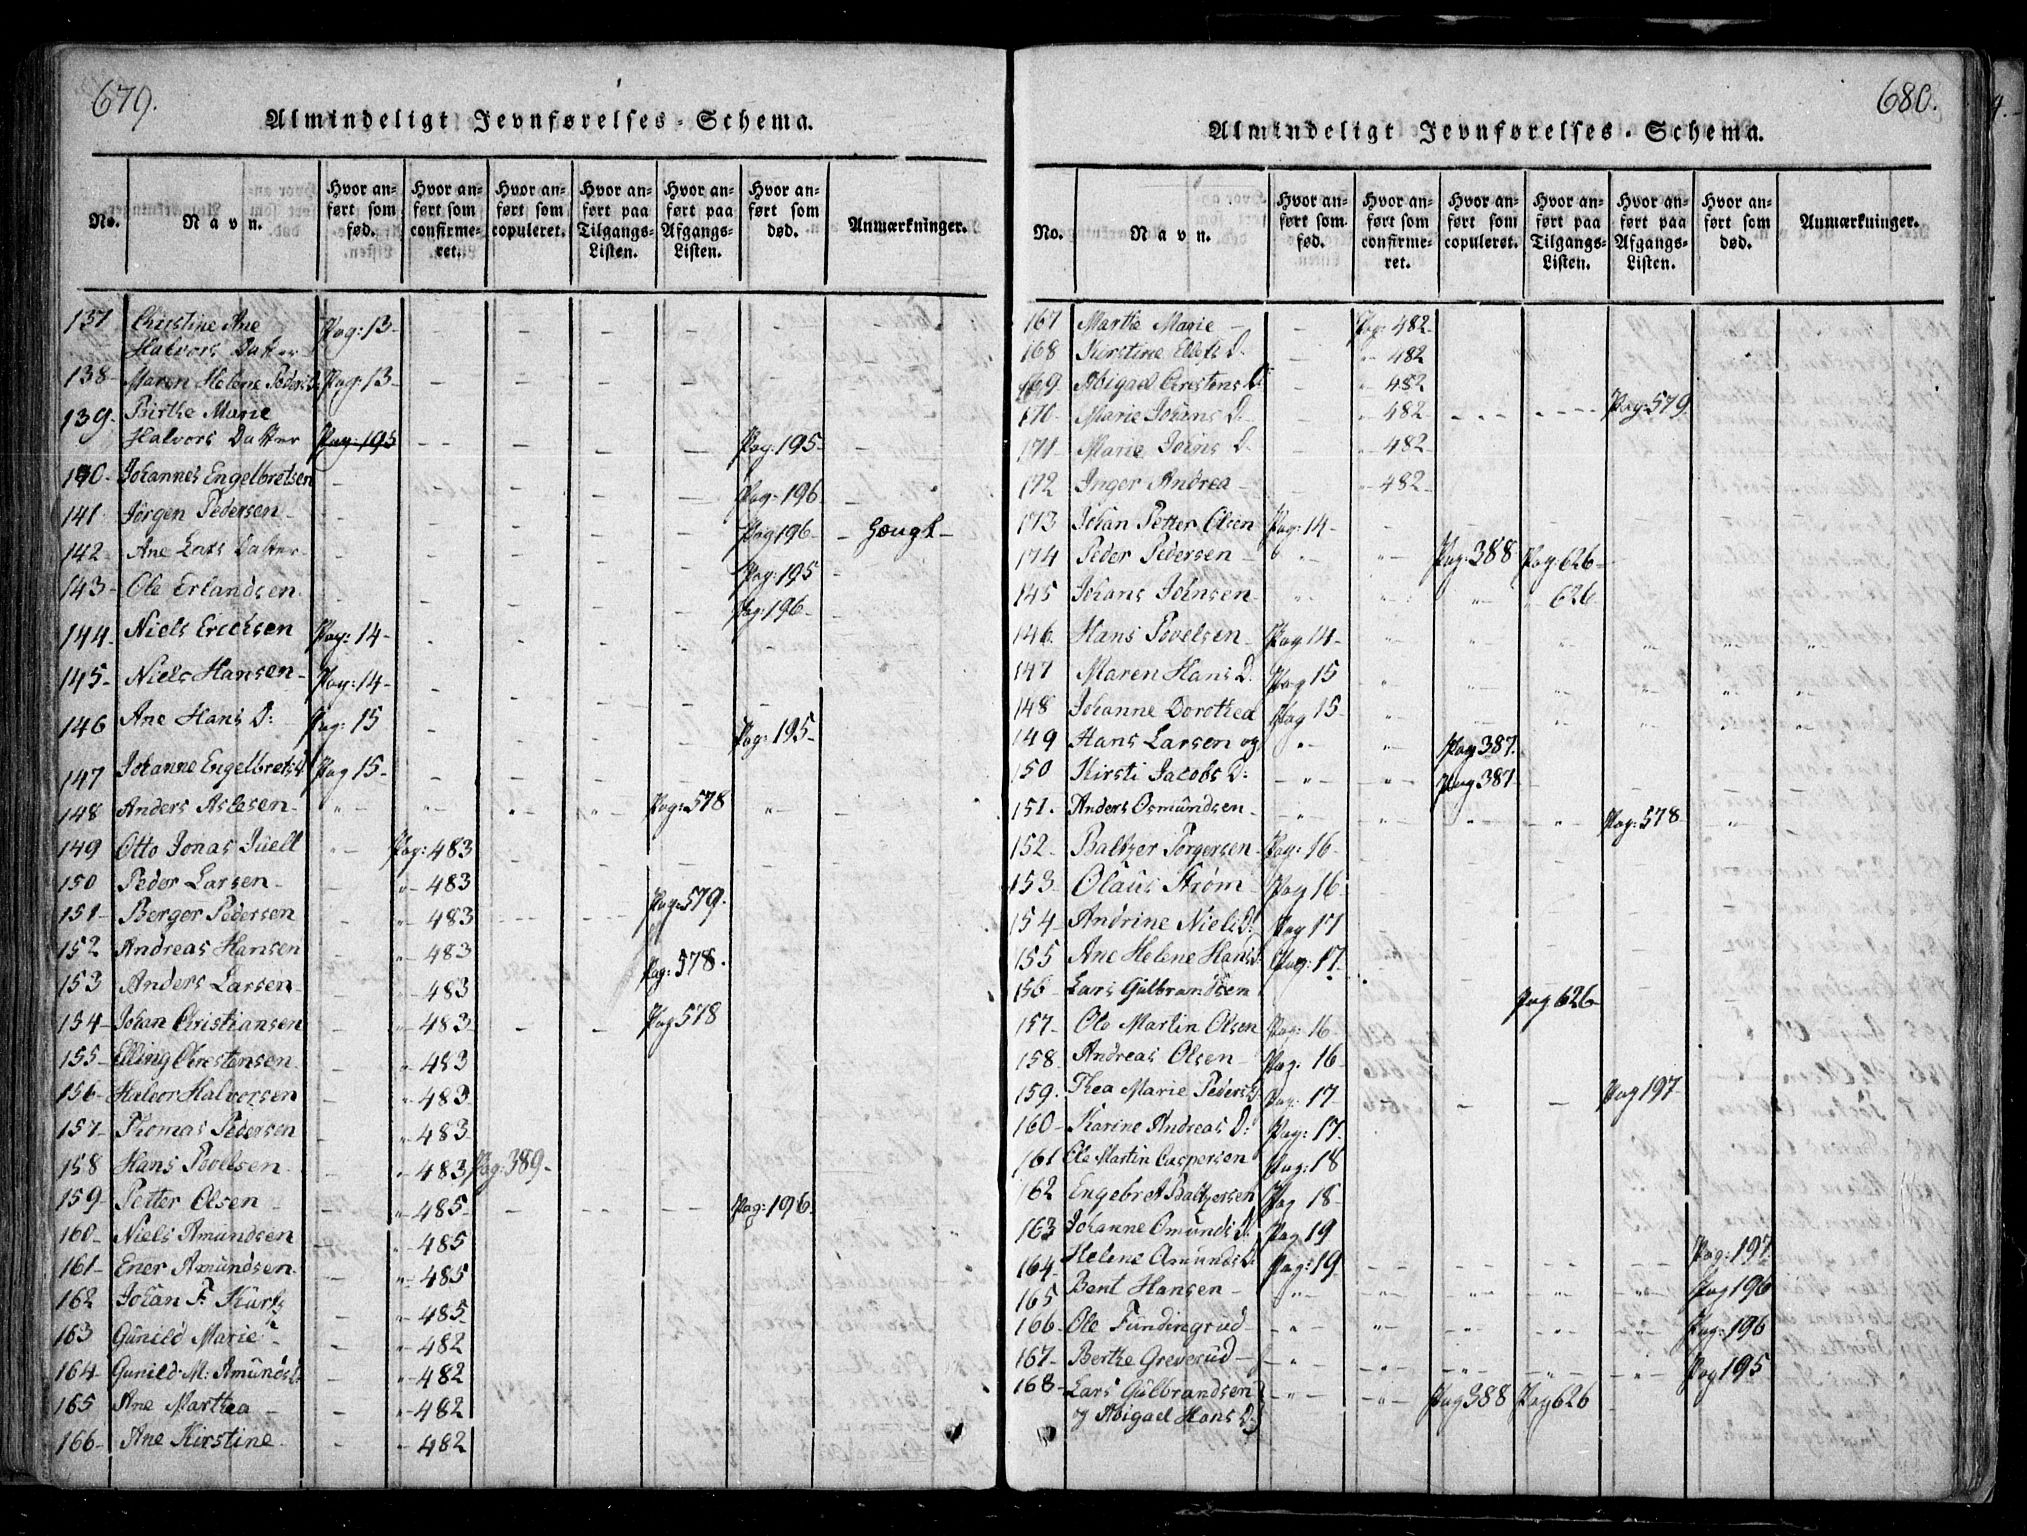 679.
Almindeligt Jevnførelses-Schema.
No. Navn. Hvor anført som fød. Hvor anført som confirmeret. Hvor anført som copuleret. Hvor anført paa Tilgangs-Listen. Hvor anført paa Afgangs-Listen. Hvor anført som død. Anmærkninger.
137 Christine Ane
Halvors Datter Pag: 13
138 Maren Helene Peders D. Pag: 13
139 Birthe Marie
Halvors Datter Pag 195 Pag: 195
140 Johannes Engelbretsen Pag: 196
141 Jørgen Pedersen Pag 196
142 Ane Lars Datter Pag: 195
143 Ole Erlandsen Pag: 196
144 Niels Erichsen Pag: 14
145 Niels Hansen Pag: 14
146 Ane Hans D: Pag: 15 Pag: 195
147 Johanne Engelbrets D Pag 15
148 Anders Aslesen Pag: 578
149 Otto Jonas Juell Pag: 483
150 Peder Larsen " 483
151 Berger Pedersen " 483 Pag: 579.
152 Andreas Hansen " 483
153 Anders Larsen " 483 Pag: 578.
154 Johan Christiansen " 483 Pag 578
155 Elling Chrestensen " 483
156 Halvor Halvorsen " 483
157 Thomas Pedersen " 483
158 Hans Poelsen " 483 Pag: 389
159 Petter Olsen " 485 Pag: 196
160 Niels Amundsen " 485
161 Ener Amundsen " 485
162 Johan F. " 485
163 Gunild Marie " 482
164 Gunild M: Amunds D. " 482
165 Ane Marthea " 482
166 Ane Kirstine " 482
680.
Almindeligt Jevnførelses-Schema.
No. Navn. Hvor anført som fød. Hvor anført som confirmeret. Hvor anført som copuleret. Hvor anført paa Tilgangs-Listen. Hvor anført paa Afgangs-Listen. Hvor anført som død. Anmærkninger.
167 Marthe Marie Pag: 482
168 Kirstine Ellefs D. " 482
169 Abigael Chrestens D: " 482
170 Marie Johans D. " 482 Pag: 579
171 Marie Johns D. " 482
172 Inger Andrea " 482
173 Johan Petter Olsen Pag: 14
174 Peder Pedersen Pag: 388 Pag: 626
145 Johans Johnsen " 626
146 Hans Povelsen Pag 14
147 Maren Hans D. Pag 15
148 Johanne Dorothea Pag 15
149 Hans Larsen og Pag 387.
150 Kirsti Jacobs D: Pag 387
151. Anders Osmundsen Pag: 578
152 Baltzer Torgersen Pag: 16
153 Olaus Strøm Pag 16
154 Andrine Niels D: Pag 17
155 Ane Helene Hans D. Pag: 17
156 Lars Gulbrandsen Pag 626
157 Ole Martin Olsen Pag: 16
158 Andreas Olsen Pag. 16
159. Thea Marie Peders D. Pag. 17 Pag 197
160 Karine Andreas D: Pag: 17
161 Ole Martin Caspersen Pag: 18
162 Engebret Baltzersen Pag 18
163 Johanne Omunds D: Pag 19
164 Helene Amunds D. Pag: 19 Pag: 197
165 Bent Hansen Pag 196
166 Ole Fundingrud Pag: 196
167 Berthe Greverud Pag 195
168 Lars Gulbrandsen Pag 388 Pag 626
og Abigael Hans D.